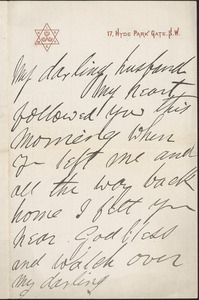 17, HYDE PARK GATE. S.W.
My darling husband
My heart
followed you this
morning when
you left me and
all the way back
home I felt you
near. God bless
and watch over
my darling